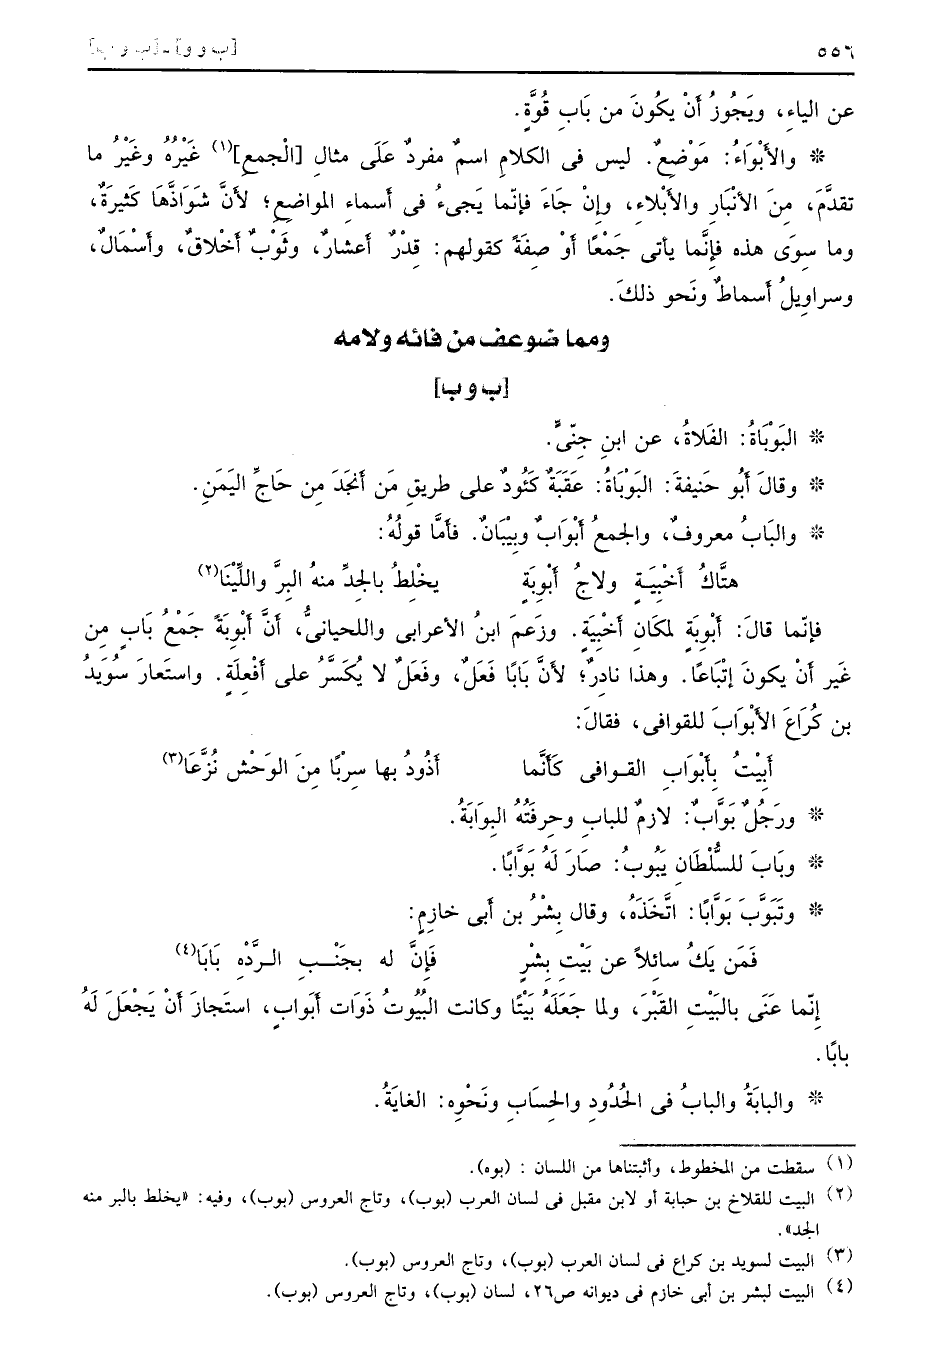 ٥٥٦
[ب و و] - [ب و ب]
عن الياءِ، ويَجُوزُ أَنْ يكُونَ من بَابِ قُوَّةٍ.
* والأَبْوَاءُ: مَوْضِعٌ. ليس فى الكلامِ اسمٌ مفردٌ عَلَى مثالِ [الْجمعِ](١) غَيْرُهُ وغَيْرُ ما
تقدَّمَ، مِنَ الأَنْبَارِ والأَبْلاءِ، وإنْ جَاءَ فإنّما يَجىءُ فى أسماءِ المواضعِ؛ لأنَّ شَوَاذَّهَا كَثيرَةٌ،
وما سِوَى هذه فإنَّما يأتى جَمْعًا أوْ صِفَةً كقولهم: قِدْرٌ أعشارٌ، وثَوْبٌ أخْلاقٌ، وأَسْمَالٌ،
وسراويلُ أسماطٌ ونَحو ذلكَ.
ومما ضوعف من فائه ولامه
[ب و ب]
* البَوْبَاةُ: الفَلاةُ، عن ابنِ جِنّىٍّ.
* وقالَ أبُو حَنيفةَ: البَوْبَاةُ: عَقَبَةٌ كَئُودٌ على طريقِ مَن أَنجَدَ مِن حَاجِّ اليَمَنِ.
* والبَابُ معروفٌ، والجمعُ أبْوَابٌ وبِيبَانٌ. فأمَّا قولُهُ:
هتَّاكُ أَخْبِيَةٍ ولاجُ أَبْوِبَةٍ يخْلِطُ بالجِدِّ منهُ البِرَّ واللِّينَا(٢)
فإنّما قالَ: أَبْوِبَةٍ لمكَانِ أخْبِيَةٍ. وزَعمَ ابنُ الأعرابى واللحيانىُّ، أنَّ أَبْوِبَةً جَمْعُ بَابٍ مِن
غَير أنْ يكونَ إتْبَاعًا. وهذا نادرٌ؛ لأنَّ بَابًا فَعَلٌ، وفَعَلٌ لا يُكَسَّرُ على أفْعِلَةٍ. واستَعارَ سُوَيدُ
بن كُرَاعَ الأبْوَابَ للقوافى، فقالَ:
أَبِيْتُ بِأَبْوَابِ القوافى كَأنَّما أَذُودُ بها سِربًا مِنَ الوَحْشِ نُزَّعَا(٣)
* ورَجُلٌ بَوَّابٌ: لازمٌ للبابِ وحِرفَتُهُ البِوَابَةُ.
* وبَابَ للسُّلْطَانِ يَبُوبُ: صَارَ لَهُ بَوَّابًا.
* وتَبَوَّبَ بَوَّابًا: اتَّخَذَهُ، وقال بِشْرُ بن أبى خازِمٍ:
فَمَن يَكُ سائلاً عن بَيْتِ بِشْرٍ فَإنَّ له بِجَنْبِ الرَّدْهِ بَابَا(٤)
إنّما عَنَى بالبَيْتِ القَبْرَ، ولما جَعَلَهُ بَيْتًا وكانت البُيُوتُ ذَوَات أَبوابٍ، استَجازَ أَنْ يَجْعَلَ لَهُ
بابًا.
* والبابَةُ والبابُ فى الحُدُودِ والحِسَابِ ونَحْوِه: الغايَةُ.
(١) سقطت من المخطوط، وأثبتناها من اللسان : (بوه).
(٢) البيت للقلاخ بن حبابة أو لابن مقبل فى لسان العرب (بوب)، وتاج العروس (بوب)، وفيه: «يخلط بالبر منه
الجد».
(٣) البيت لسويد بن كراع فى لسان العرب (بوب)، وتاج العروس (بوب).
(٤) البيت لبشر بن أبى خازم فى ديوانه ص٢٦، لسان (بوب)، وتاج العروس (بوب).